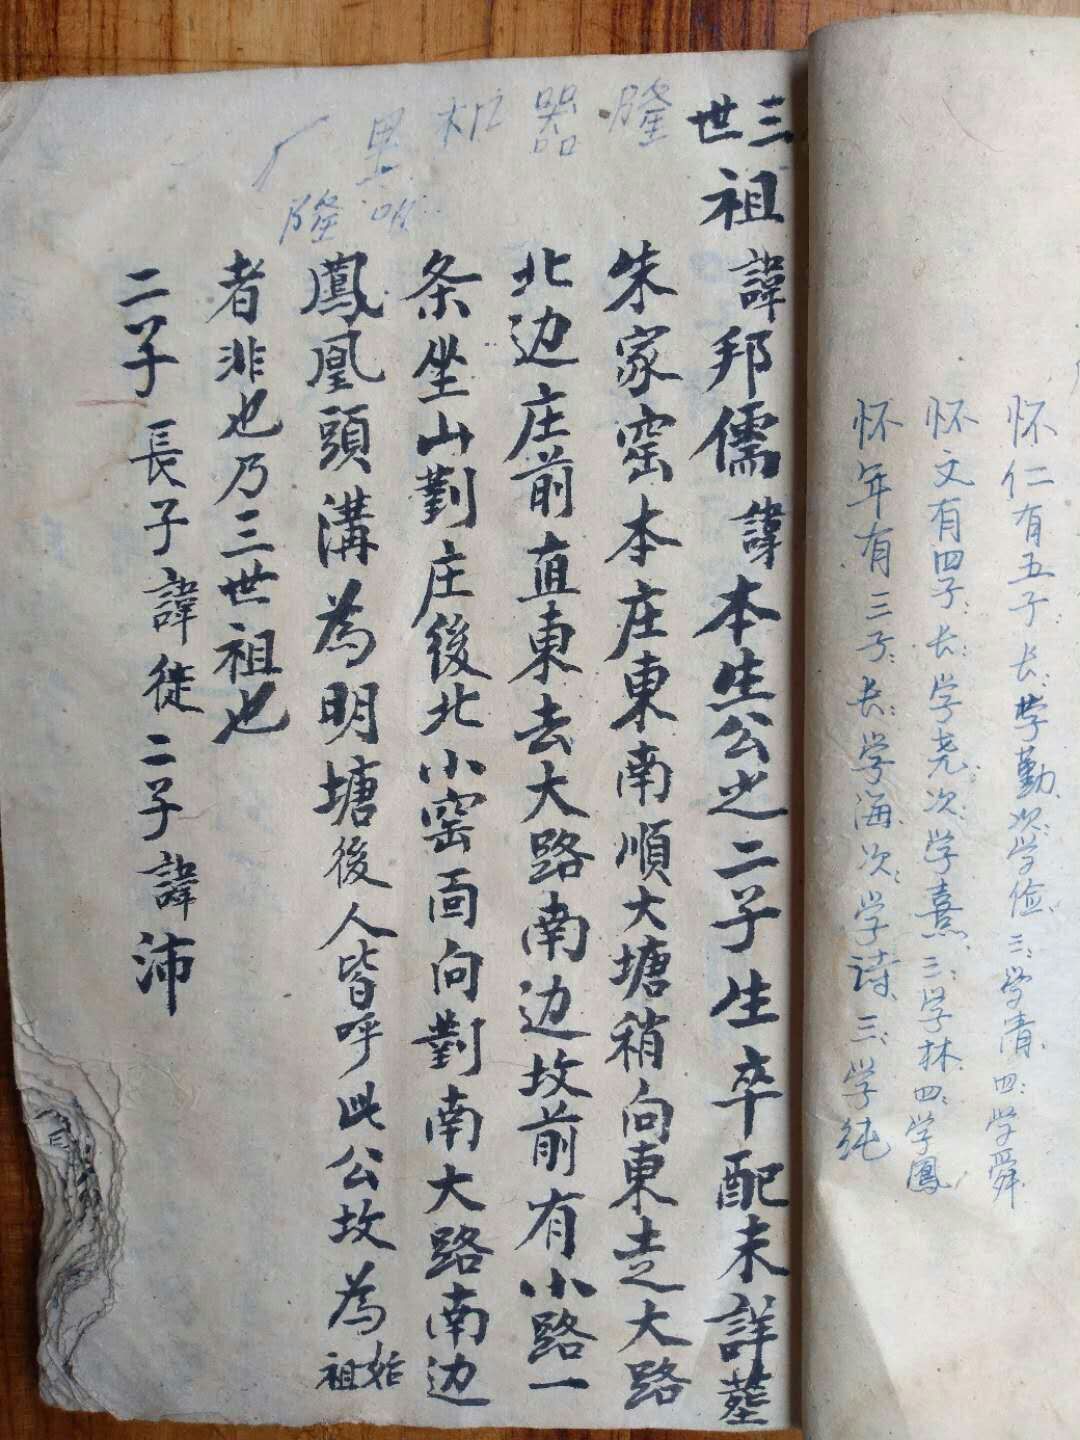 怀仁有五子长:学勤次:学俭三:学清四:学舜
怀文有四子:长:学尧次:学熹三:学林四:学鳳
怀年有三子:长:学海次:学诗三:学纯
三世祖諱邦儒諱本生公之二子生卒配未詳塟
朱家窑本庄東南順大塘稍向東走大路
北边庄前直東去大路南边坟前有小路一
条坐山對庄後北小窑面向對南大路南边
鳳凰頭溝為明塘後人皆呼此公坟為始祖
者非也乃三世祖也
二子長子諱徙二子諱沛
隆器机厂
隆